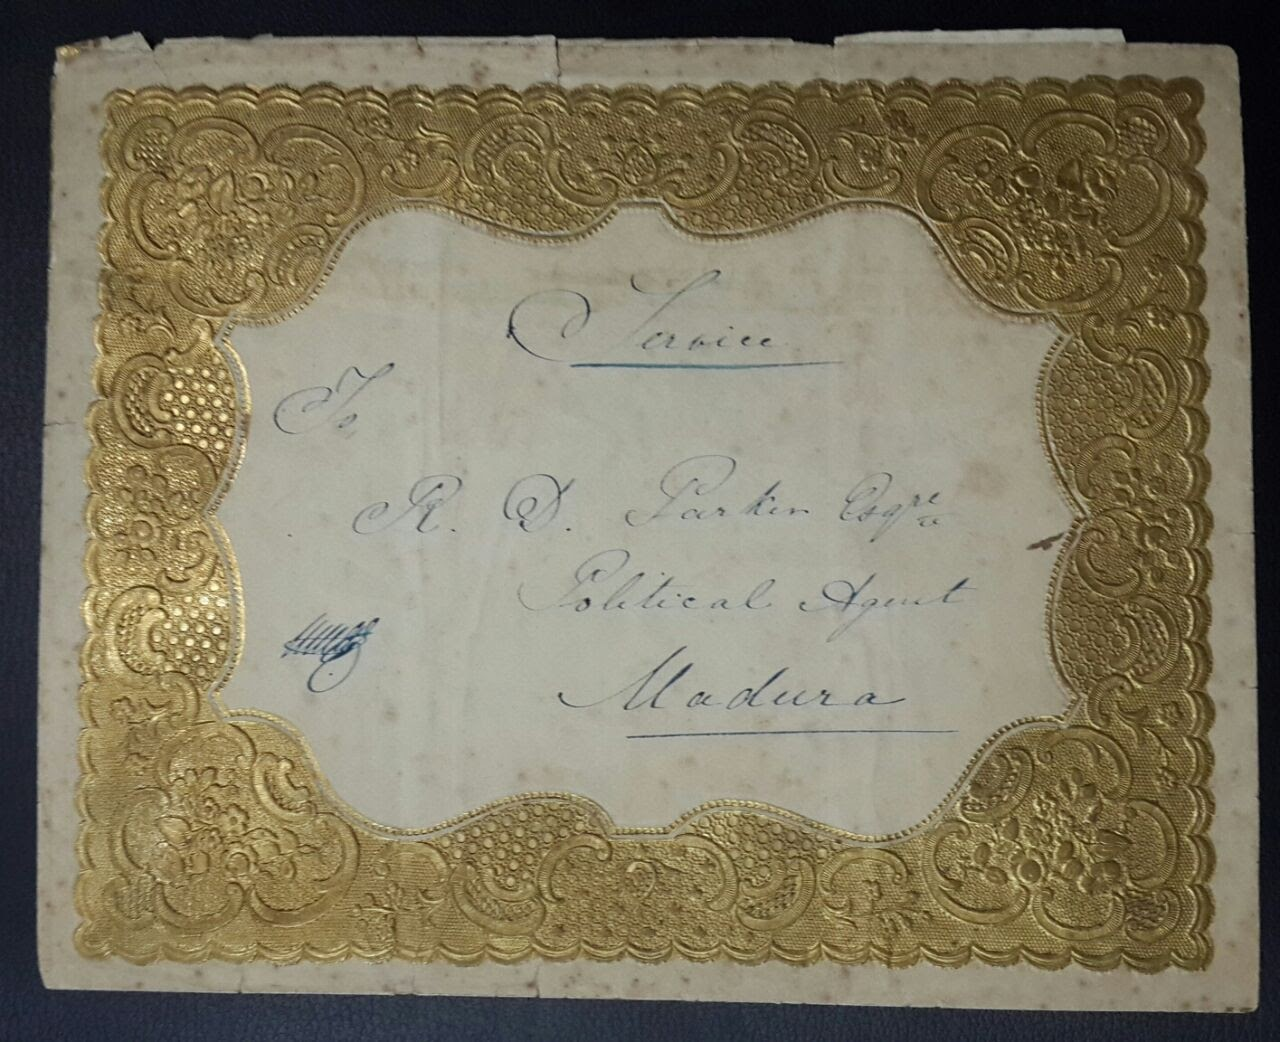 Service
To
R. D. Parker Esqre
Political Agent
Madura